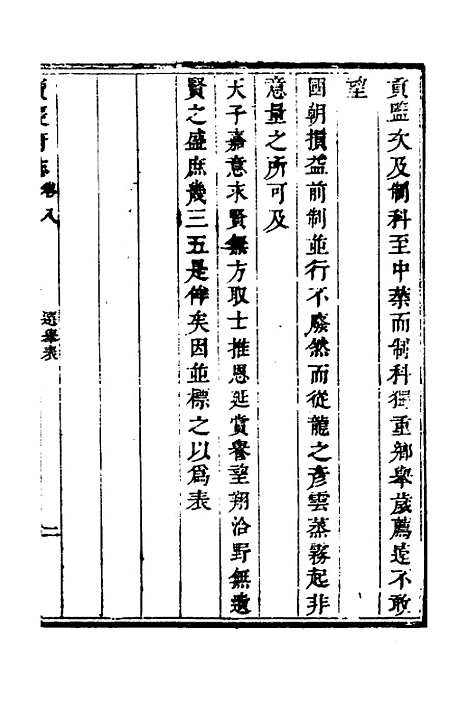 貢監次及制科至中葉而制科獨重鄉舉歲薦遠不敢
望
國朝損益前制並行不廢然而從龍之彥雲蒸霧起非
意量之所可及
天子嘉意求賢無方取士推恩延賞譽望翔洽野無遺
賢之盛庶幾三五是侔矣因並標之以爲表
府志 卷八
選舉表
二